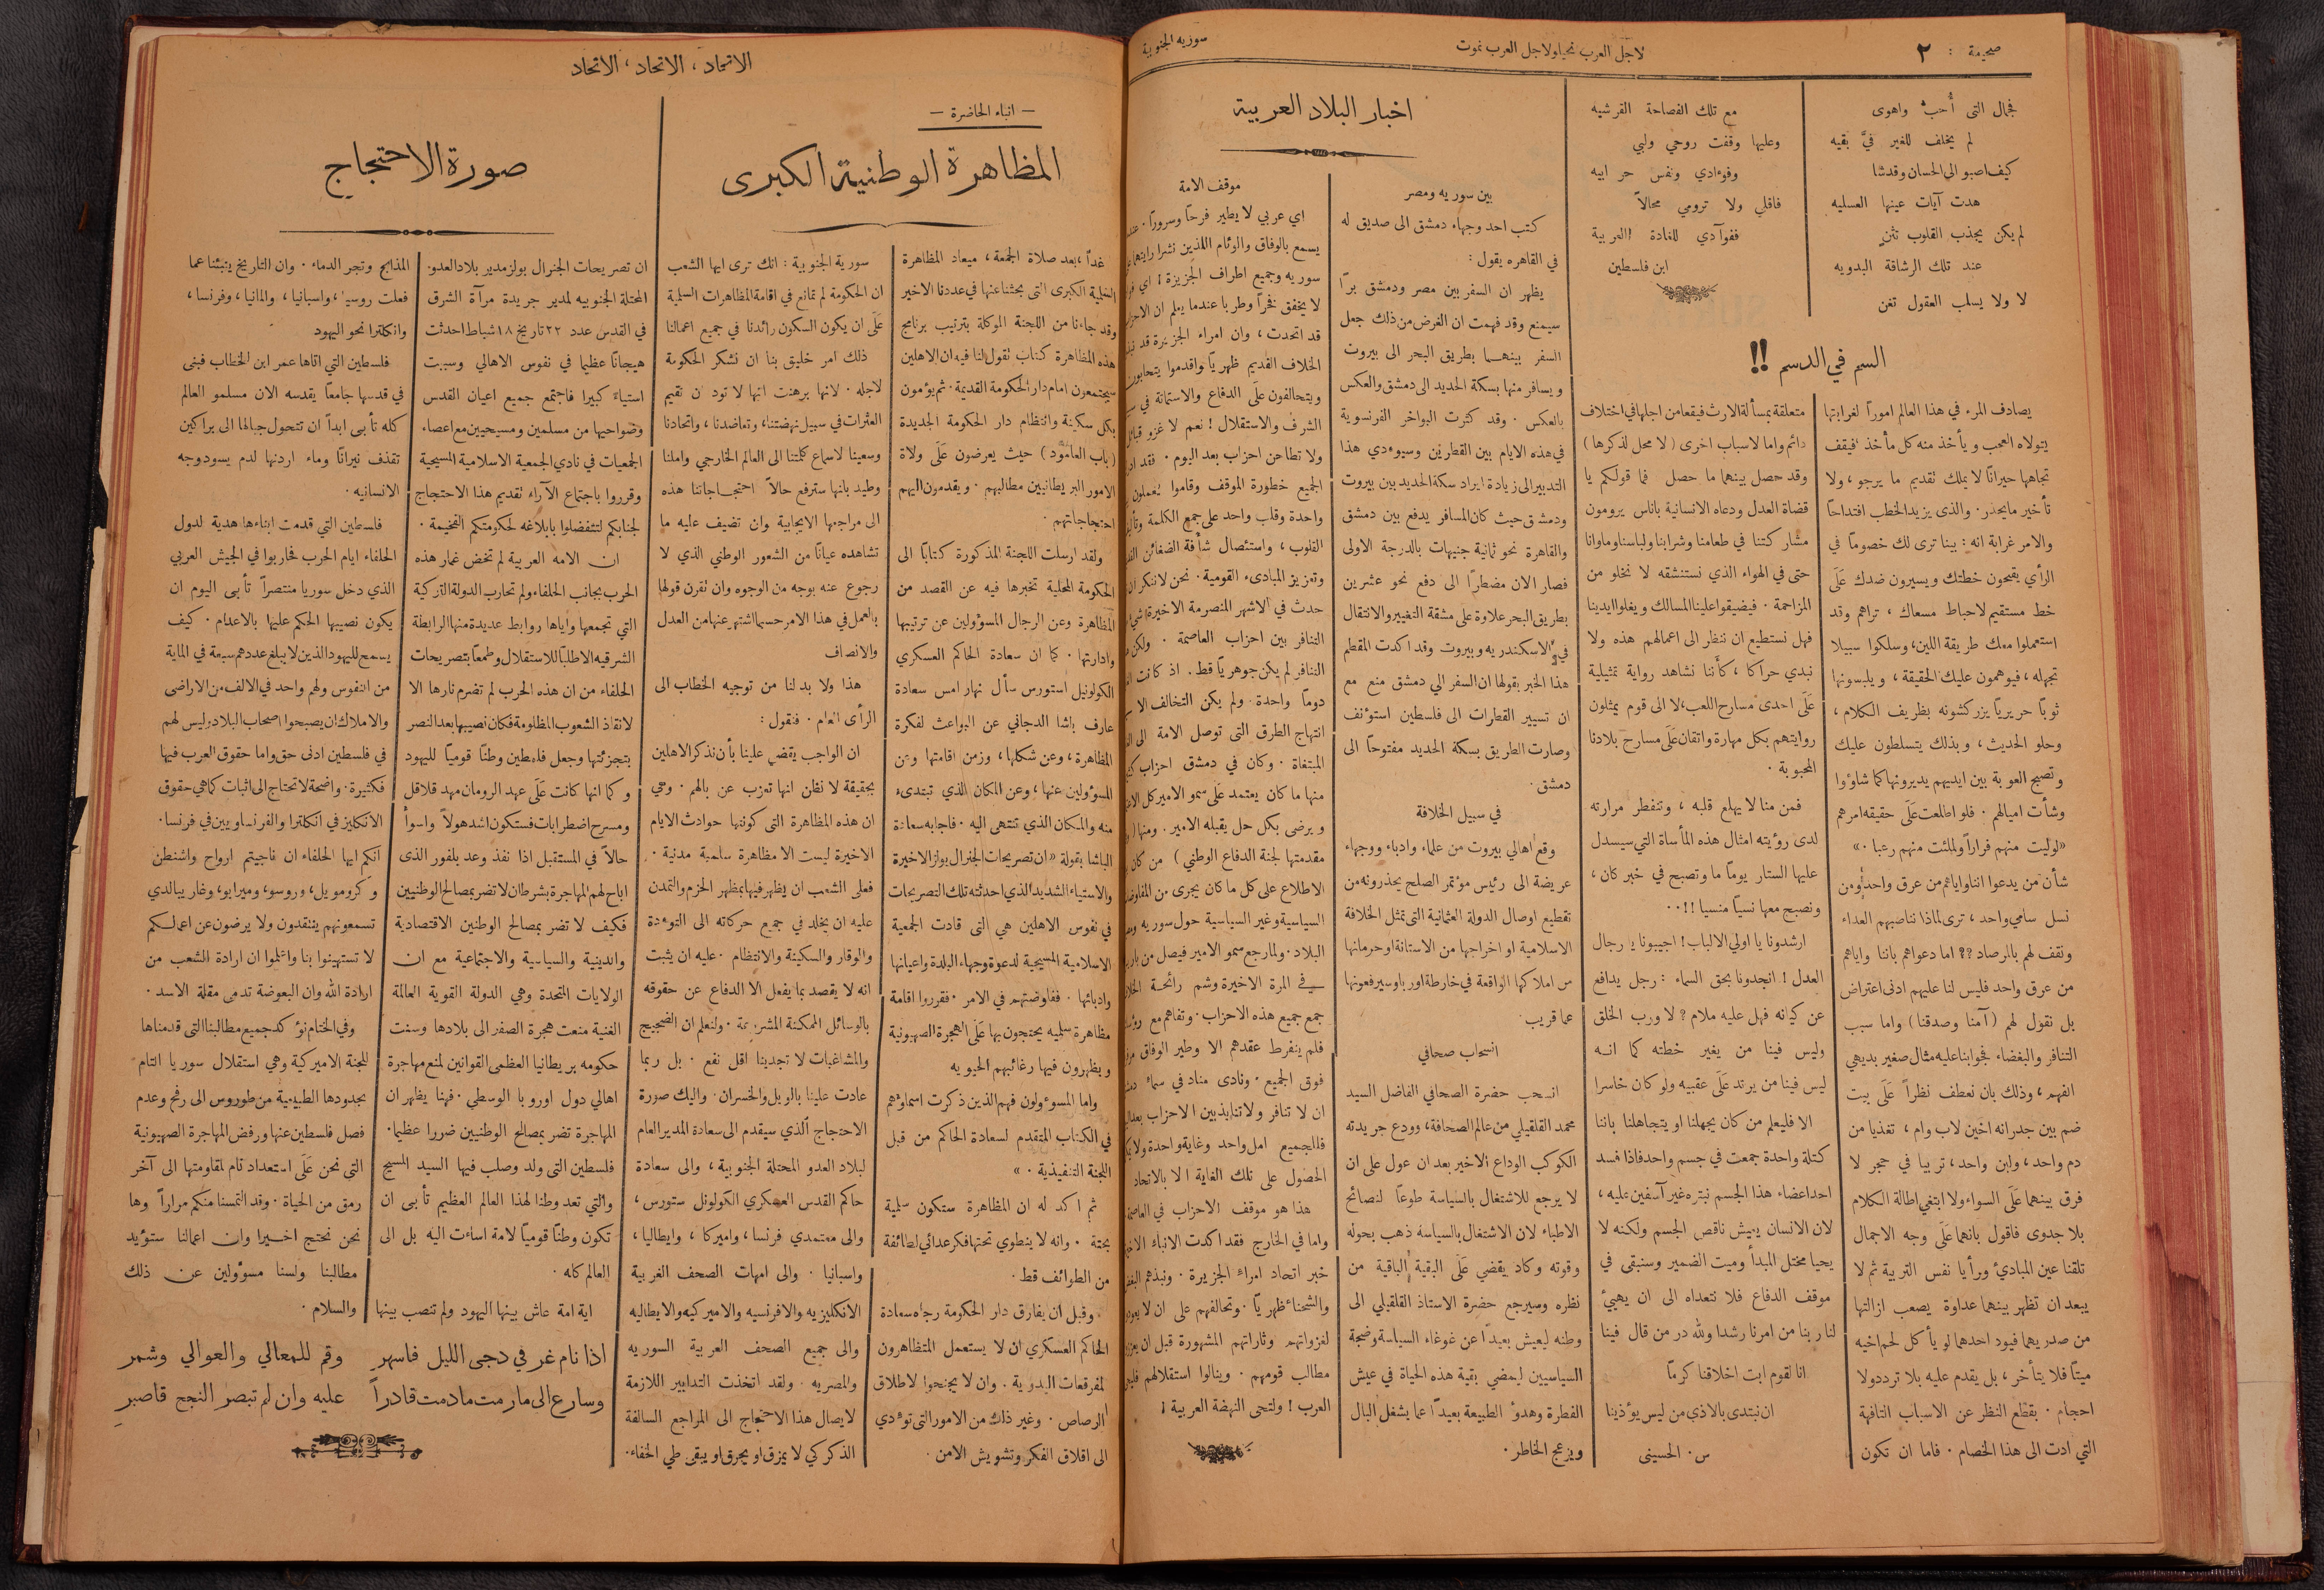 صحيفة : ٢
لاجل العرب نحيا ولاجل العرب نموت
سورية الجنوبية
فجمال التى أُحب واهوى
لم يخلف للغير فيَّ بقيه
كيف اصبو الى الحسان وقدشا
هدت آيات عينها العسليه
لم يكن يجذب القلوب تثنٍ
عند تلك الرشاقة البدويه
لا ولا يسلب العقول تغن
مع تلك الفصاحة القرشيه
وعليها وقفت روحي ولبي
وفوءادي ونفس حر ابيه
فاقلي ولا ترومي محالاً
ففوآدي للغادة العربية
ابن فلسطين
السم في الدسم !!
يصادف المرء في هذا العالم اموراً لغرابتها
يتولاه العجب ويأخذ منه كل مأخذ فيقف
تجاهها حيرانًا لا يملك تقديم ما يرجو، ولا
تأخير مايحذر. والذى يزيد الخطب افتداحاً
والامر غرابة انه: بينا ترى لك خصومًا في
الرأي يقبحون خطتك ويسيرون ضدك عَلَى
خط مستقيم لاحباط مسعاك، تراهم وقد
استعملوا معك طريقة اللين، وسلكوا سبيلا
تجهله، فيوهمون عليك الحقيقة، ويلبسونها
ثوبًا حريريًا يزركشونه بظريف الكلام،
وحلو الحديث، وبذلك يتسلطون عليك
وتصبح العوبة بين ايديهم يديرونها كما شاؤوا
وشأت اميالهم. فلو اطلعت عَلَى حقيقه امرهم
«لوليت منهم فراراً ولملئت منهم رعبا.»
شأن من يدعوا اننا واياهم من عرق واحد أومن
نسل سامي واحد، ترى لماذا نناصبهم العداء
ونقف لهم بالمرصاد؟؟ اما دعواهم باننا واياهم
من عرق واحد فليس لنا عليهم ادنى اعتراض
بل نقول لهم (آمنا وصدقنا) واما سبب
التنافر والبغضاء فجوابنا عليه مثال صغير بديهي
الفهم، وذلك بان نعطف نظراً عَلَى بيت
ضم بين جدرانه اخين لاب وام، تغذيا من
دم واحد، ولبن واحد، تربيا في حجر لا
فرق بينهما عَلَى السواء ولا ابتغي اطالة الكلام
بلا جدوى فاقول بانهما عَلَى وجه الاجمال
تلقنا عين المبادئ ورأيا نفس التربية ثم لا
يبعد ان تظهر بينهما عداوة يصعب ازالتها
من صدريهما فيود احدهما لو يأكل لحم اخيه
ميتًا فلا يتأخر، بل يقدم عليه بلا تردد ولا
احجام. بقطع النظر عن الاسباب التافهة
التي ادت الى هذا الخصام. فاما ان تكون
متعلقة بمسألة الارث فيقعا من اجلها في اختلاف
دائم واما لاسباب اخرى (لا محل لذكرها)
وقد حصل بينهما ما حصل فما قولكم يا
قضاة العدل ودعاه الانسانية باناس يرومون
مشاركتنا في طعامنا وشرابنا ولباسنا وماوانا
حتى في الهواء الذي نستنشقه لا نخلو من
المزاحمة. فيضيقوا علينا المسالك ويغلوا ايدينا
فهل نستطيع ان ننظر الى اعمالهم هذه ولا
نبدي حراكا، كأننا نشاهد رواية تمثيلية
عَلَى احدى مسارح اللعب، لا الى قوم يمثلون
روايتهم بكل مهارة واتقان عَلَى مسارح بلادنا
المحبوبة.
فمن منا لا يهلع قلبه، وتنفطر مرارته
لدى روئيته امثال هذه المأساة التي سيسدل
عليها الستار يومًا ما وتصبح في خبر كان،
ونصبح معها نسيًا منسيا!!..
ارشدونا يا اولي الالباب! اجيبونا يا رجال
العدل! انجدونا بحق السماء: رجل يدافع
عن كيانه فهل عليه ملام؟ لا ورب الخلق
وليس فينا من يغير خطته كما انه
ليس فينا من يرتد عَلَى عقبيه ولو كان خاسرا
الا فليعلم من كان يجهلنا او يتجاهلنا باننا
كتلة واحدة جمعت في جسم واحد فاذا فسد
احد اعضاء هذا الجسم نبتره غير آسفين عليه،
لان الانسان يعيش ناقص الجسم ولكنه لا
يحيا مختل المبدأ وميت الضمير وسنبقى في
موقف الدفاع فلا نتعداه الى ان يهيئ
لنا ربنا من امرنا رشدا ولله در من قال فينا
انا لقوم ابت اخلاقنا كرمًا
ان نبتدى بالاذي من ليس يؤذينا
س. الحسينى
اخبار البلاد العربية
بين سوريه ومصر
كتب احد وجهاء دمشق الى صديق له
في القاهره يقول:
يظهر ان السفر بين مصر ودمشق برًا
سيمنع وقد فهمت ان الغرض من ذلك جعل
السفر بينهما بطريق البحر الى بيروت
ويسافر منها بسكة الحديد الى دمشق والعكس
بالعكس. وقد كثرت البواخر الفرنسوية
في هذه الايام بين القطرين وسيوءدي هذا
التدبير الى زيادة ايراد سكة الحديد بين بيروت
ودمشق حيث كان المسافر يدفع بين دمشق
والقاهرة نحو ثمانية جنيهات بالدرجة الاولى
فصار الان مضطرًا الى دفع نحو عشرين
بطريق البحر علاوة على مشقة التغيير والانتقال
في الاسكندريه وبيروت وقد اكدت المقطم
هذا الخبر بقولها ان السفر الي دمشق منع مع
ان تسيير القطرات الى فلسطين استوئنف
وصارت الطريق بسكة الحديد مفتوحًا الى
دمشق.
في سبيل الخلافة
وقع اهالي بيروت من علماء وادباء ووجهاء
عريضة الى رئيس موتمر الصلح يحذرونه من
تقطيع اوصال الدولة العثمانية التى تمثل الخلافة
الاسلامية او اخراجها من الاستانة او حرمانها
من املاكها الواقعة في خارطة اوربا وسيرفعونها
عما قريب.
انسحاب صحافي
انسحب حضرة الصحافي الفاضل السيد
محمد القلقيلي من عالم الصحافة، وودع جريدته
الكوكب الوداع الاخير بعد ان عول على ان
لا يرجع للاشتغال بالسياسة طوعًا لنصائح
الاطباء لان الاشتغال بالسياسه ذهب بحوله
وقوته وكاد يقضي عَلَى البقية الباقية من
نظره وسيرجع حضرة الاستاذ القلقيلي الى
وطنه ليعيش بعيدًا عن غوغاء السياسة وضجة
السياسيين ليمضي بقية هذه الحياة في عيش
الفطرة وهدوء الطبيعة بعيدًا عما يشغل البال
ويزعج الخاطر.
موقف الامة
اي عربي لا يطير فرحًا وسرورًا.
يسمع بالوفاق والوئام اللذين نشرا رايتهما
سوريه وجميع اطراف الجزيزة! اي
لا يخفق فخراً وطربا عندما يعلم ان
قد اتحدت، وان امراء الجزيرة قد
الخلاف القديم ظهريًا واقدموا
ويتحالفون عَلَى الدفاع والاستماتة في
الشرف والاستقلال! نعم لا غزو
ولا تطاحن احزاب بعد اليوم. فقد
الجميع خطورة الموقف وقاموا يعملون
واحدة وقلب واحد على جمع الكلمة
القلوب، واستئصال شأفة الضغائن
وتعزيز المبادىء القومية. نحن لا ننكر ان
حدث في الاشهر المنصرمة الاخيرة
التنافر بين احزاب العاصمة. ولكن
التنافر لم يكن جوهريًا قط. اذ كانت
دومًا واحدة. ولم يكن التخالف الا
انتهاج الطرق التى توصل الامة الى
المبتغاة. وكان في دمشق احزاب
منها ما كان يعتمد عَلَى سمو الامير كل
ويرضى بكل حل يقبله الامير. ومنها
مقدمتها لجنة الدفاع الوطني) من كان
الاطلاع على كل ما كان يجرى من
السياسية وغير السياسية حول سوريه
البلاد. ولما رجع سمو الامير فيصل من
في المرة الاخيرة وشم رائحة
جمع جميع هذه الاحزاب. وتفاهم مع
فلم ينفرط عقدهم الا وطير الوفاق
فوق الجميع. ونادى مناد في سماء
ان لا تنافر ولا تنابذ بين الاحزاب
فللجميع امل واحد وغاية واحدة
الحصول على تلك الغاية الا بالاتحاد
هذا هو موقف الاحزاب في
واما في الخارج فقد اكدت الانباء
خبر اتحاد امراء الجزيرة. ونبذهم
والشحناء ظهريًا. وتحالفهم على ان لا
لغزواتهم وثاراتهم المشهورة قبل ان
مطالب قومهم. وينالوا استقلالهم
العرب! ولتحى النهضة العربية!
الاتحاد، الاتحاد، الاتحاد
— انباء الحاضرة —
المظاهرة الوطنية الكبرى
غداً، بعد صلاة الجمعة، ميعاد المظاهرة
السلمية الكبرى التى بحثنا عنها في عددنا الاخير
وقد جاءنا من اللجنة الموكلة بترتيب برنامج
هذه المظاهرة كتاب تقول لنا فيه ان الاهلين
سيجتمعون امام دار الحكومة القديمة. ثم يوءمون
بكل سكينة وانتظام دار الحكومة الجديدة
(باب العامود) حيث يعرضون عَلَى ولاة
الامور البريطانيين مطاليبهم. ويقدمون اليهم
احتجاجاتهم.
ولقد ارسلت اللجنة المذكورة كتابًا الى
الحكومة المحلية تخبرها فيه عن القصد من
المظاهرة وعن الرجال المسؤولين عن ترتيبها
وادارتها. كما ان سعادة الحاكم العسكري
الكولونيل استورس سأل نهار امس سعادة
عارف باشا الدجاني عن البواعث لفكرة
المظاهرة، وعن شكلها، وزمن اقامتها وعن
المسؤولين عنها، وعن المكان الذي تبتدىء
منه والمكان الذي تنتهى اليه. فاجابه سعادة
الباشا بقوله «ان تصريحات الجنرال بولز الاخيرة
والاستياء الشديد الذي احدثته تلك التصريحات
في نفوس الاهلين هي التى قادت الجمعية
الاسلامية المسيحية لدعوة وجهاء البلدة واعيانها
وادبائها. ففاوضتهم في الامر. فقرروا اقامة
مظاهرة سلميه يحتجون بها عَلَى الهجرة الصهيونية
ويظهرون فيها رغائبهم الحيويه
واما المسوءولون فهم الذين ذكرت اسماؤهم
في الكتاب المتقدم لسعادة الحاكم من قبل
اللجنة التنفيذية.»
ثم اكد له ان المظاهرة ستكون سلمية
بحتة. وانه لا ينطوي تحتها فكر عدائي لطائفة
من الطوائف قط.
وقبل ان يفارق دار الحكومة رجاه سعادة
الحاكم العسكري ان لا يستعمل المتظاهرون
المفرقعات البدوية. وان لا يجنحوا لاطلاق
الرصاص. وغير ذلك من الامور التى توءدي
الى اقلاق الفكر وتشويش الامن.
سورية الجنوبية: انك ترى ايها الشعب
ان الحكومة لم تمانع في اقامة المظاهرات السلمية
عَلَى ان يكون السكون رائدنا في جميع اعمالنا
ذلك امر خليق بنا ان نشكر الحكومة
لاجله. لانها برهنت انها لا تود ان تقيم
العثرات في سبيل نهضتنا، وتعاضدنا، واتحادنا
وسعينا لاسماع كلمتنا الى العالم الخارجي واملنا
وطيد بانها سترفع حالاً احتجاجاتنا هذه
الى مراجعها الايجابية وان تضيف عليه ما
تشاهده عيانًا من الشعور الوطني الذي لا
رجوع عنه بوجه من الوجوه وان تقرن قولها
بالعمل في هذا الامر حسبما اشتهر عنها من العدل
والانصاف
هذا ولا بد لنا من توجيه الخطاب الى
الرأى العام. فنقول:
ان الواجب يقضى علينا بأن نذكر الاهلين
بحقيقة لا نظن انها تعزب عن بالهم. وهي
ان هذه المظاهرة التى كونتها حوادث الايام
الاخيرة ليست الا مظاهرة سلمية مدنية.
فعلى الشعب ان يظهر فيها بمظهر الحزم والتمدن
عليه ان يخلد في جميع حركاته الى التوءدة
والوقار والسكينة والانتظام. عليه ان يثبت
انه لا يقصد بما يفعل الا الدفاع عن حقوقه
بالوسائل الممكنة المشروعة. ولنعلم ان الضجيج
والمشاغبات لا تجدينا اقل نفع. بل ربما
عادت علينا بالويل والخسران. واليك صورة
الاحتجاج الذي سيقدم الى سعادة المدير العام
لبلاد العدو المحتلة الجنوبية، والى سعادة
حاكم القدس العسكري الكولونل ستورس،
والى معتمدي فرنسا، واميركا، وايطاليا،
واسبانيا. والى امهات الصحف الغربية
الانكليزيه والافرنسيه والاميركيه والايطاليه
والى جميع الصحف العربية السوريه
والمصريه. ولقد اتخذت التدابير اللازمة
لايصال هذا الاحتجاج الى المراجع السالفة
الذكر كي لا يمزق او يحرق او يبقى طي الخفاء.
صورة الاحتجاج
ان تصريحات الجنرال بولز مدير بلاد العدو
المحتلة الجنوبيه لمدير جريدة مرآة الشرق
في القدس عدد ٢٢ تاريخ ١٨ شباط احدثت
هيجانًا عظيما في نفوس الاهالي وسببت
استياءً كبيرا فاجتمع جميع اعيان القدس
وضواحيها من مسلمين ومسيحيين مع اعضاء
الجمعيات في نادي الجمعية الاسلامية المسيحية
وقرروا باجتماع الآراء تقديم هذا الاحتجاج
لجنابكم لتتفضلوا بابلاغه لحكومتكم الفخيمة.
ان الامه العربية لم تخض غمار هذه
الحرب بجانب الحلفاء ولم تحارب الدولة التركية
التي تجمعها واياها روابط عديدة منها الرابطة
الشرقيه الا طلبًا للاستقلال وطمعًا بتصريحات
الحلفاء من ان هذه الحرب لم تضرم نارها الا
لانقاذ الشعوب المظلومة فكان نصيبها بعد النصر
بتجزئتها وجعل فلسطين وطنًا قوميًا لليهود
وكما انها كانت عَلَى عهد الرومان مهد قلاقل
ومسرح اضطرابات فستكون اشد هولاً واسوأ
حالاً في المستقبل اذا نفذ وعد بلفور الذى
اباح لهم المهاجرة بشرط ان لا تضر بمصالح الوطنيين
فكيف لا تضر بمصالح الوطنين الاقتصادية
والدينية والسياسية والاجتماعية مع ان
الولايات المتحدة وهي الدولة القوية العالمة
الغنية منعت هجرة الصفر الى بلادها وسنت
حكومه بريطانيا العظمى القوانين لمنع مهاجرة
اهالي دول اوروبا الوسطي. فهنا يظهر ان
المهاجرة تضر بمصالح الوطنيين ضررا عظيما.
فلسطين التى ولد وصلب فيها السيد المسيح
والتي تعد وطنا لهذا العالم العظيم تأبى ان
تكون وطنًا قوميًا لامة اساءت اليه بل الى
العالم كله.
اية امة عاش بينها اليهود ولم تنصب بينها
المذابح وتجر الدماء. وان التاريخ ينبئنا عما
فعلت روسيا، واسبانيا، والمانيا، وفرنسا،
وانكلترا نحو اليهود
فلسطين التي اتاها عمر ابن الخطاب فبنى
في قدسها جامعًا يقدسه الان مسلمو العالم
كله تأبى ابداً ان تتحول جبالها الى براكين
تقذف نيرانًا وماء اردنها لدم يسود وجه
الانسانيه.
فلسطين التي قدمت ابناءها هدية لدول
الحلفاء ايام الحرب فحاربوا في الجيش العربي
الذي دخل سوريا منتصراً تأبى اليوم ان
يكون نصيبها الحكم عليها بالاعدام. كيف
يسمح لليهود الذين لا يبلغ عددهم سبعة في الماية
من النفوس ولهم واحد في الالف من الاراضى
والاملاك ان يصبحوا اصحاب البلاد وليس لهم
في فلسطين ادنى حق واما حقوق العرب فيها
فكثيرة. واضحة لا تحتاج الى اثبات كما هي حقوق
الانكليز في انكلترا والفرنساويين في فرنسا.
انكم ايها الحلفاء ان ناجيتم ارواح واشنطن
وكرومويل، وروسو، وميرابو، وغاريبالدي
تسمعونهم ينتقدون ولا يرضون عن اعمالكم
لا تستهينوا بنا واعلموا ان ارادة الشعب من
ارادة الله وان البعوضة تدمى مقلة الاسد.
وفي الختام نؤكد جميع مطالبنا التى قدمناها
للجنة الاميركية وهي استقلال سوريا التام
بحدودها الطبيعية من طوروس الى رفح وعدم
فصل فلسطين عنها ورفض المهاجرة الصهيونية
التى نحن عَلَى استعداد تام لمقاومتها الى آخر
رمق من الحياة. وقد التمسنا منكم مراراً وها
نحن نحتج اخيرا وان اعمالنا ستؤيد
مطالبنا ولسنا مسؤولين عن ذلك
والسلام.
اذا نام غر في دجى الليل فاسهر وقم للمعالي والعوالي وشمر
وسارع الى ما رمت ما دمت قادراً عليه وان لم تبصر النجح فاصبر